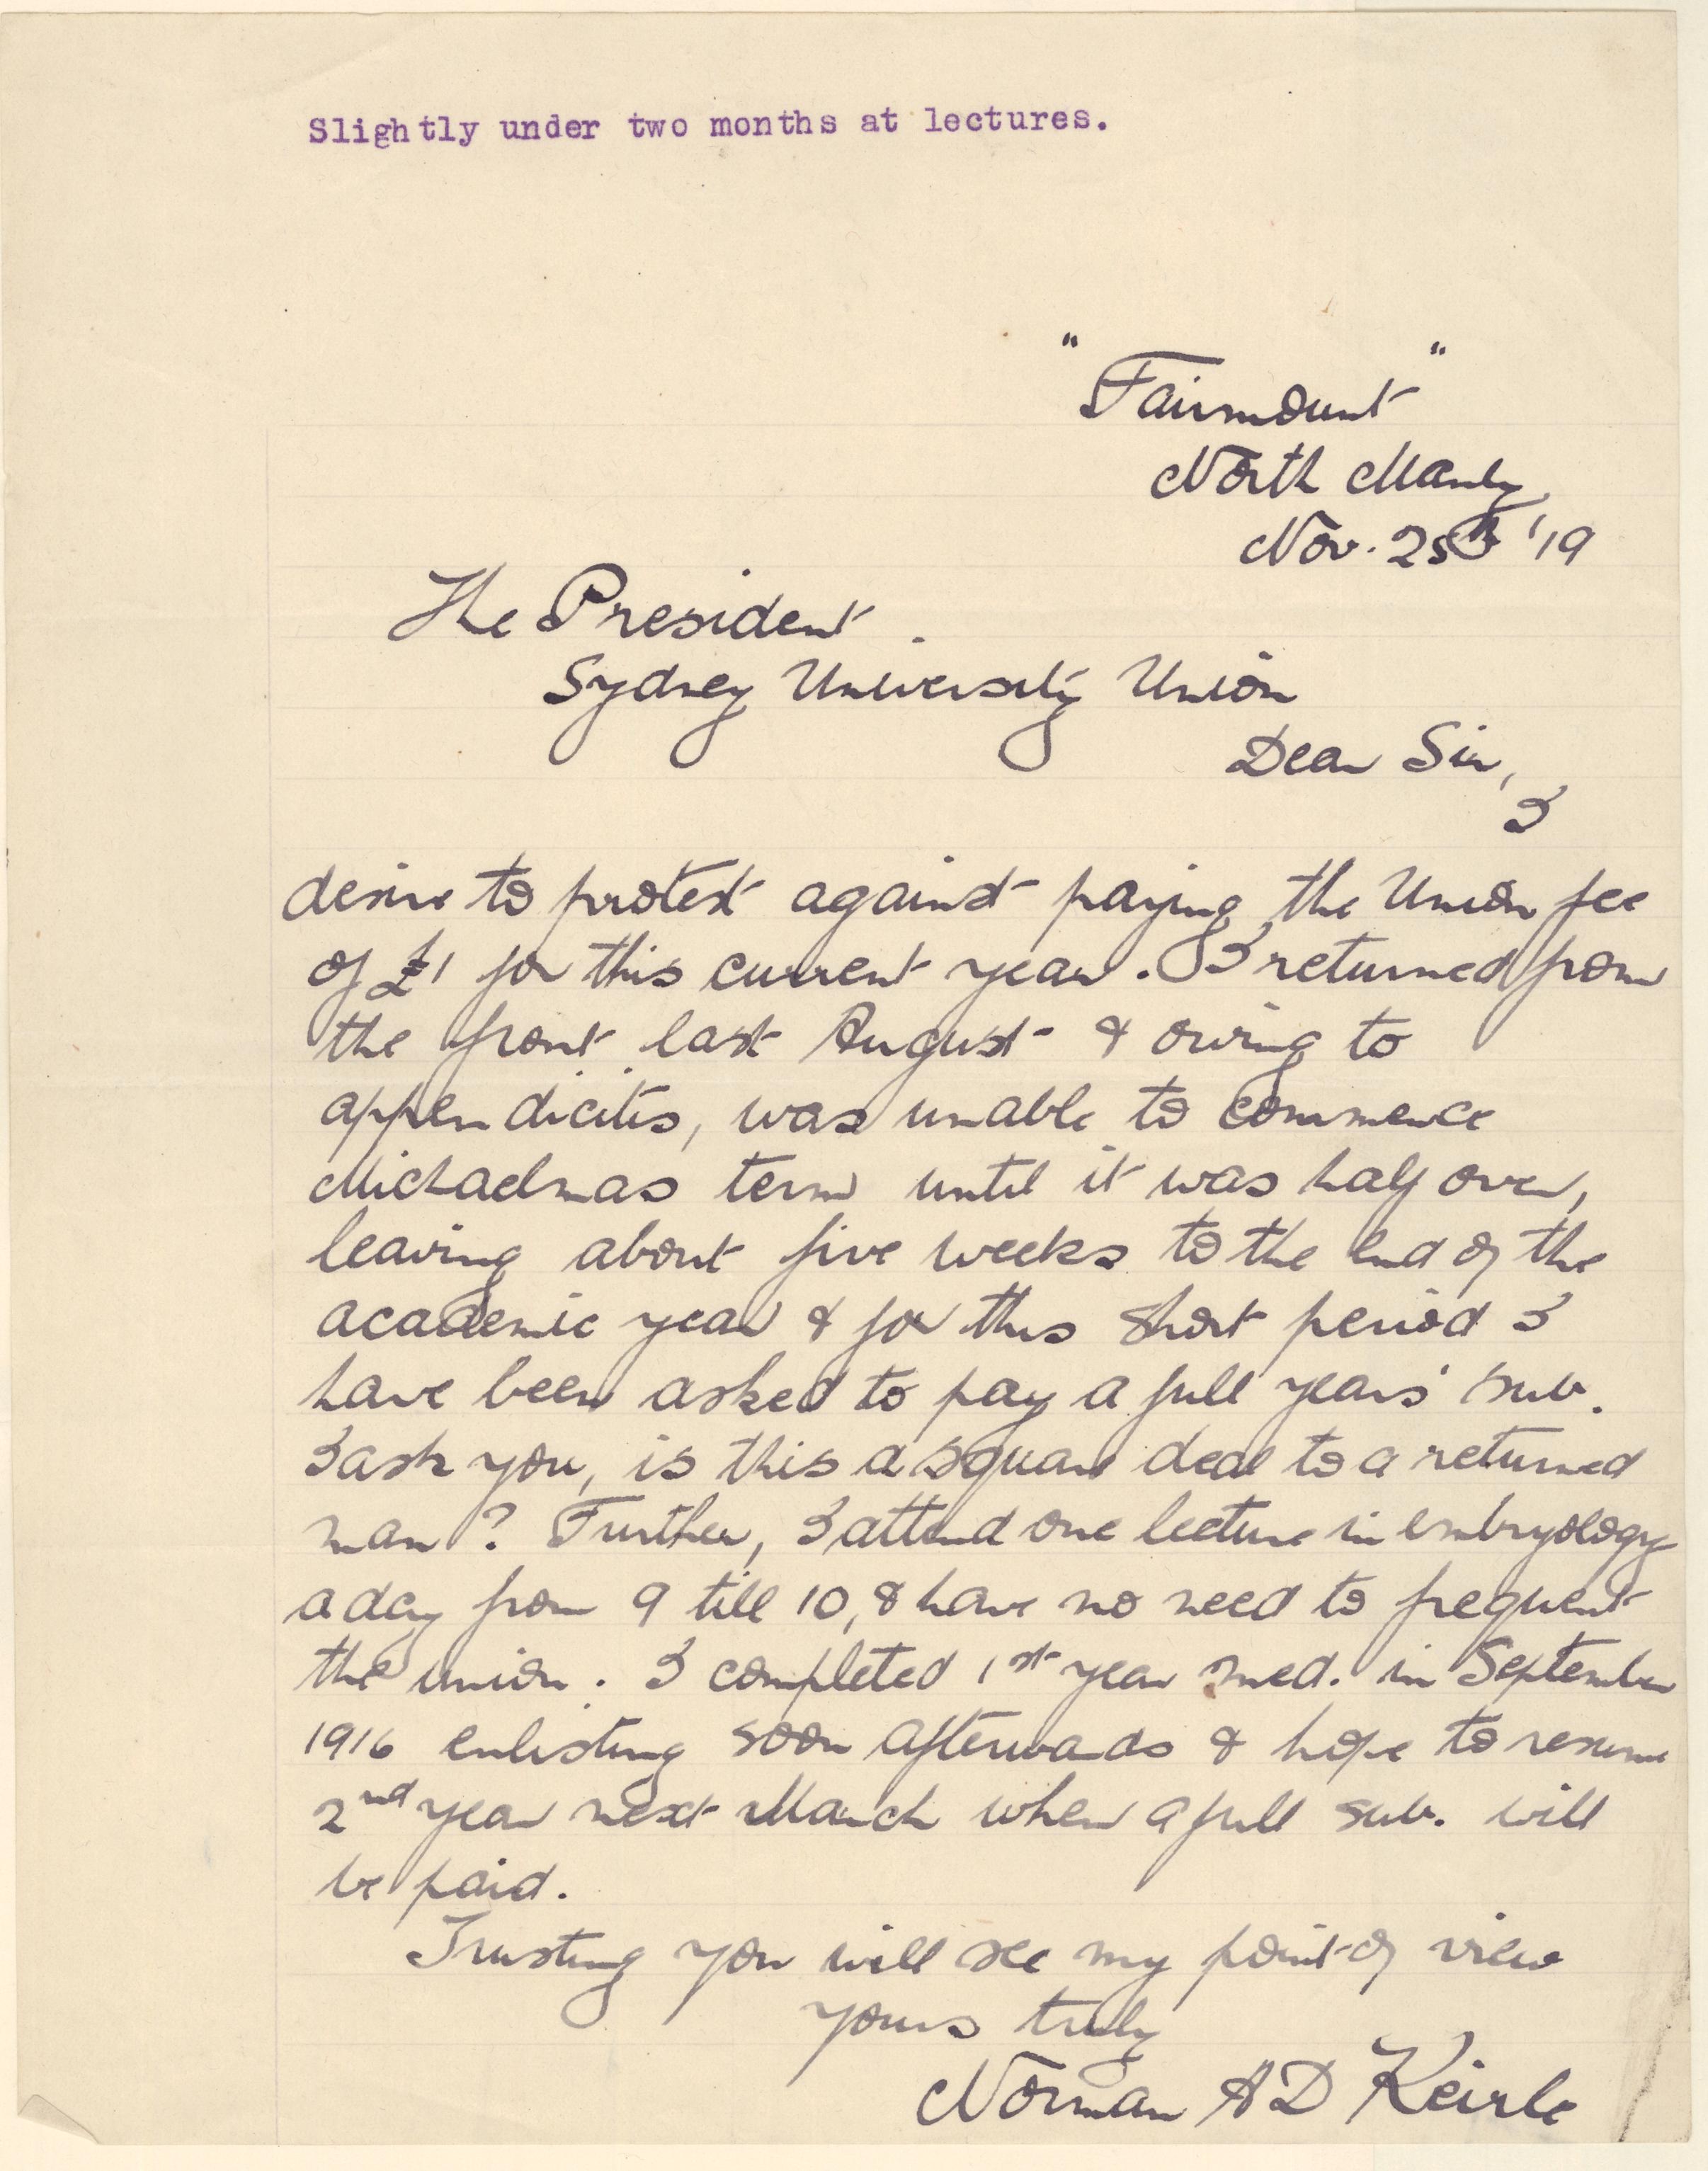 Slightly under two months at lectures.
"Fairmount"
North Manly
Nov. 25th '19
The President.
Sydney University Union
Dear Sir,
I
desire to protest against paying the Union fee
of £1 for this current year. I returned from
the front last August & owing to
appendicitis, was unable to commence
Michaelmas term until it was half over,
leaving about five weeks to the end of the
academic year & for this short period I
have been asked to pay a full years' sub.
I ask you, is this a square deal to a returned
man? Further, I attend one lecture in embryology
a day from 9 till 10, & have no need to frequent
the union. I completed 1st year med. in September
1916 enlisting soon afterwards & hope to resume
2nd year next March when a full sub. will
be paid.
Trusting you will see my point of view
yours truly
Norman A D Keirle